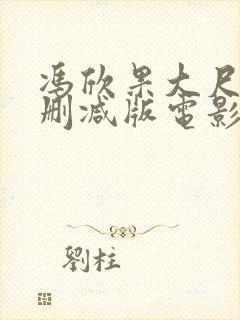 馮欣果大尺
刪減版電影
劉柱